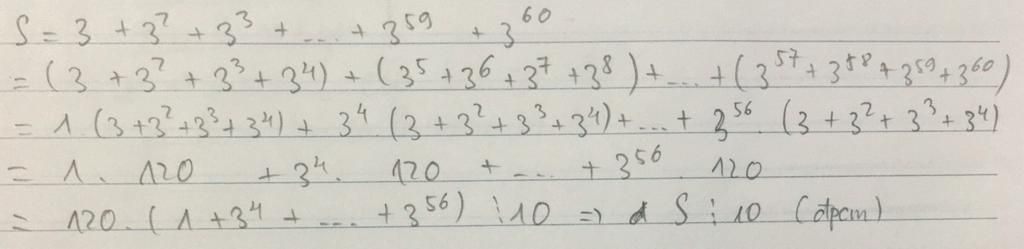 S = 3 + 3² + 3³ + ... + 3⁵⁹ + 3⁶⁰
= (3 + 3² + 3³ + 3⁴) + (3⁵ + 3⁶ + 3⁷ + 3⁸) + ... + (3⁵⁷ + 3⁵⁸ + 3⁵⁹ + 3⁶⁰)
= 1. (3 + 3² + 3³ + 3⁴) + 3⁴ (3 + 3² + 3³ + 3⁴) + ... + 3⁵⁶. (3 + 3² + 3³ + 3⁴)
= 1. 120 + 3⁴. 120 + ... + 3⁵⁶. 120
= 120. (1 + 3⁴ + ... + 3⁵⁶) ⋮ 10 => S ⋮ 10 (đpcm)